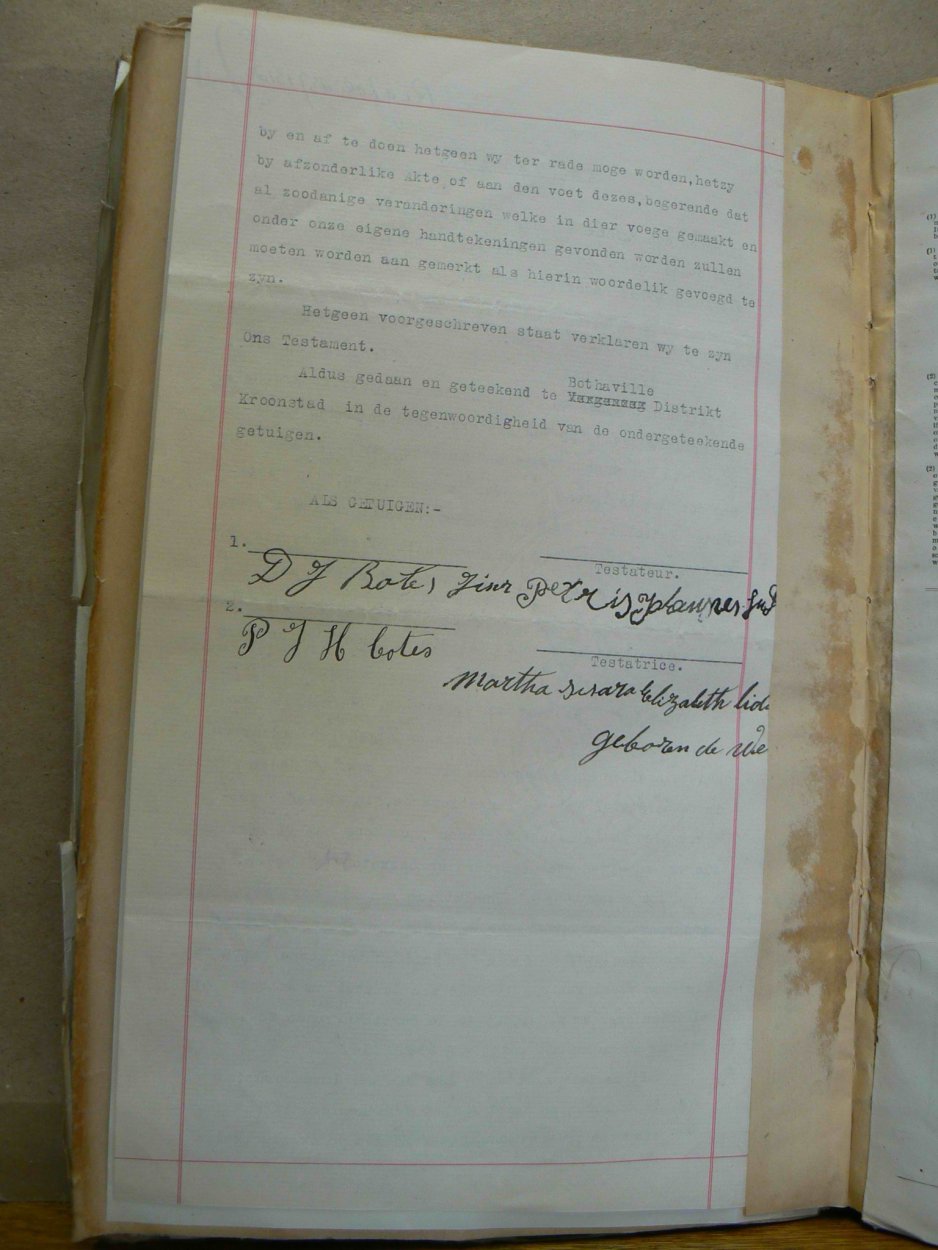 by en af te doen hetgeen wy ter rade moge worden,hetzy
by afzonderlike Akte,of aan den voet dezes,begerende dat
al zoodanige veranderingen welke in dier voege gemaakt en
onder onze eigene handtekeningen gevonden worden zullen
moeten worden aan gemerkt als hierin woordelik gevoegd te
zyn.
Hetgeen voorgeschreven staat verklaren wy te zyn
Ons Testament.
Bothaville
Aldus gedaan en geteekend te Distrikt
Kroonstad in de tegenwoordigheid van de ondergeteekende
getuigen.
ALS GETUIGEN:-
1.
Testateur.
D J Botes
2.
P J H botes
Testatrice.
Martha Elizabeth
geboren de